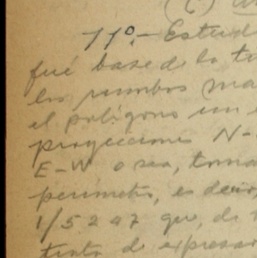 11º.- Estud
fué base de la
los rumbos ma
el polígono en
proyecciones N-
E-W o sea, toma
perímetro, es decir,
1/5207 que, de
de expresar